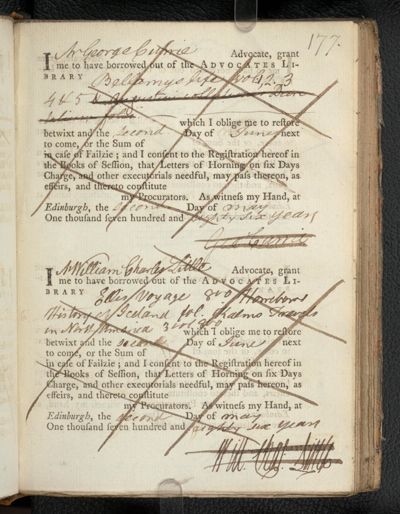 177.
I Mr George Advocate, grant
me to have borrowed out of the ADVOCATES LI-
BRARY Bellamys Life vol 1, 2, 3
4 & 5
which I oblige me to reſtore
betwixt and the second Day of June next
to come, or the Sum of
in caſe of Failzie; and I conſent to the Regiſtration hereof in
the Books of Seſſion, that Letters of Horning on ſix Days
Charge, and other executorials needful, may paſs thereon, as
effeirs, and thereto conſtitute
my Procurators. As witneſs my Hand, at
Edinburgh, the second Day of may
One thouſand ſeven hundred and eighty six years
I Mr William Charles Little Advocate, grant
me to have borrowed out of the ADVOCATES LI-
BRARY Ellis Voyage 8vo Horrebows
History of Iceland fol. Travels
in North America 8vo
which I oblige me to reſtore
betwixt and the second Day of June next
to come, or the Sum of
in caſe of Failzie; and I conſent to the Regiſtration hereof in
the Books of Seſſion, that Letters of Horning on ſix Days
Charge, and other executorials needful, may paſs hereon, as
effeirs, and thereto conſtitute
my Procurators. As witneſs my Hand, at
Edinburgh, the second Day of may
One thouſand ſeven hundred and eighty six years
Will Chas. Little